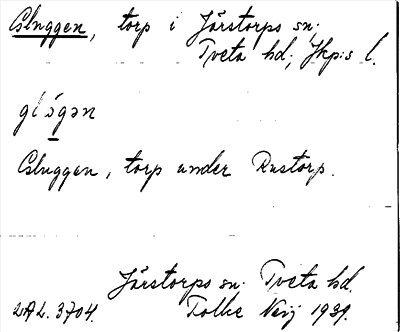 Gluggen, torp i Järstorps sn;
Tveta hd; Jkp:s l.
Gluggen, torp under Rustorp.
Järstorps sn. Tveta hd.
LAL. 3704. Folke Neij 1939.